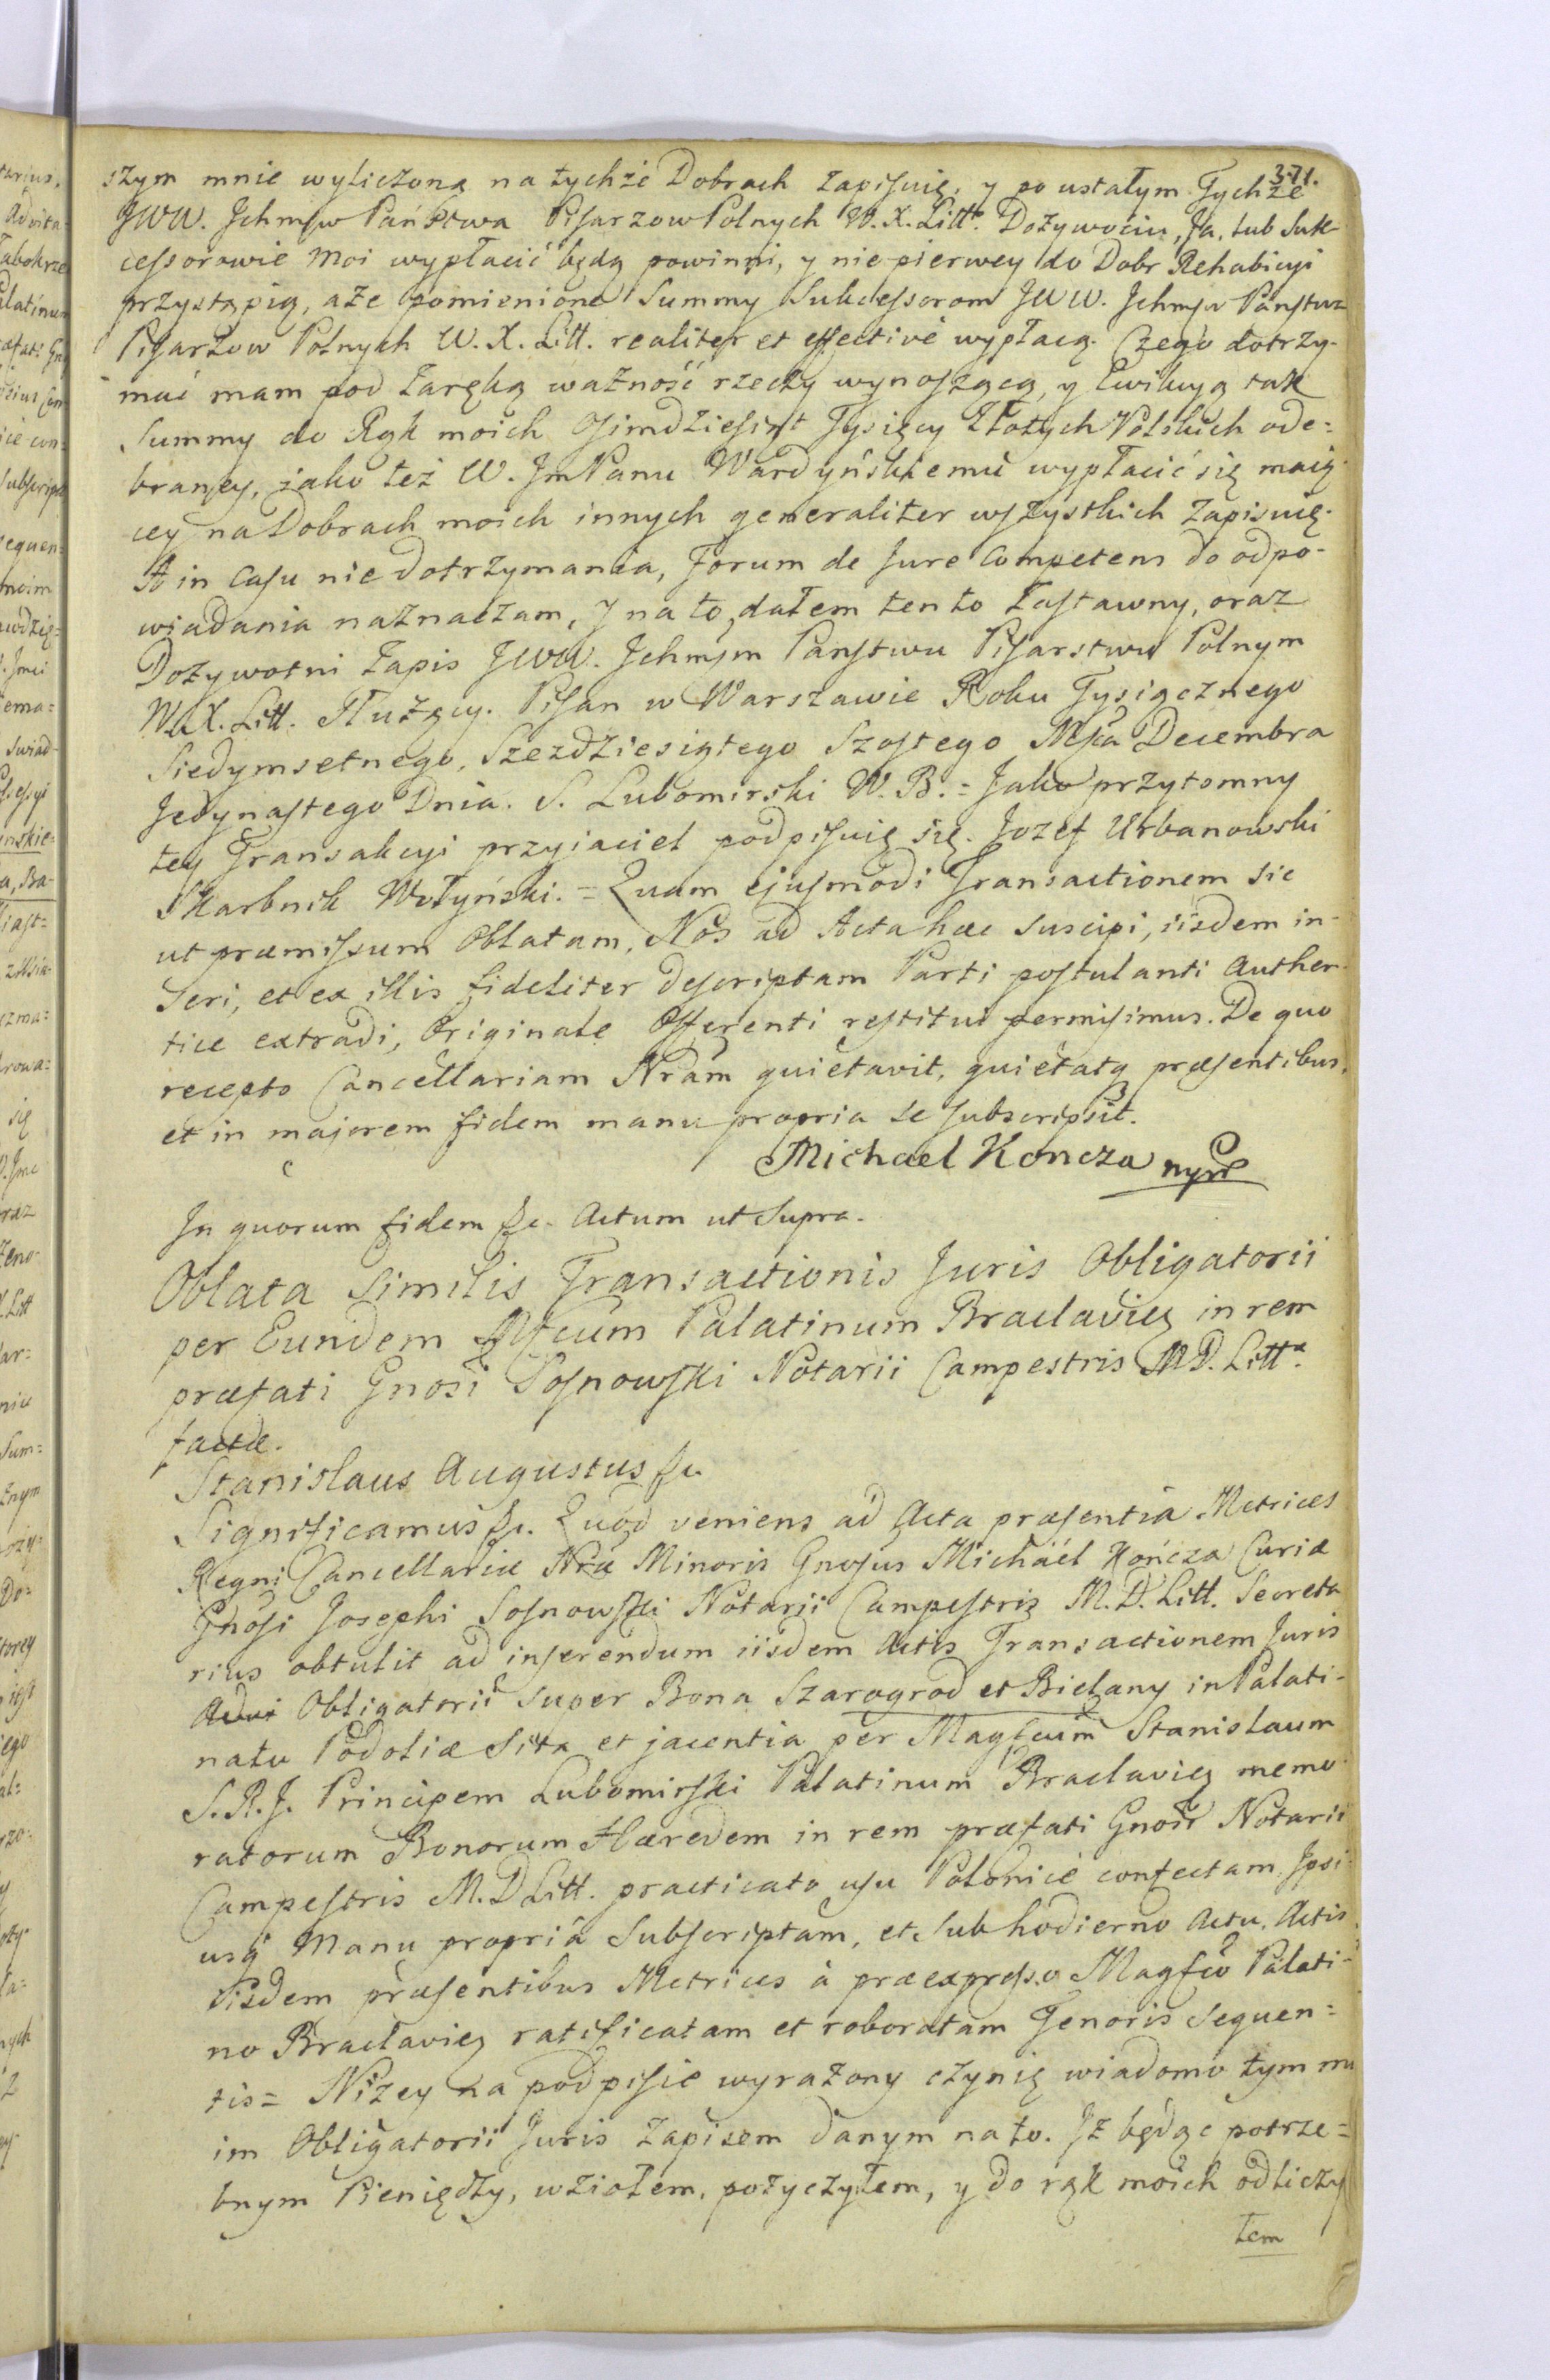 371.
szym mnie wyliczoną na tychże Dobrach zapisuię, y po ustałym Tychże
JWW. Ichmśw Państwa Pisarzow Polnych W. X. Litt. Dożywociu, Ja, lub Suk-
cessorowie moi wypłacić będą powinni, y nie pierwey do Dobr Rehabicyi
przystąpią, aże pomienione Summy Sukcessorom JWW. Ichmsw Państwa
Pisarzow Polnych W. X. Litt. realiter et effective wypłacą. Czego dotrzy-
mać mam pod zaręką ważność rzeczy wynoszącą, y Ewikcyą tak
Summy do Rąk moich Osimdziesiąt Tysięcy Złotych Polskich ode=
braney, jako też W. Jm Panu Wardyńskiemu wypłacić się maią-
cey na Dobrach moich innych generaliter wszystkich zapisuię.
A in Casu niedotrzymania, Forum de Jure Competens do odpo-
wiadania naznaczam, y na to dałem ten to zastawny, oraz
Dożywotni zapis JWW. Ichmsm Państwu Pisarstwu Polnym
W. X. Litt. służący. Pisan w Warszawie Roku Tysiącznego
Siedymsetnego, Szezdziesiątego Szostego Msca Decembra
Jedynastego Dnia. S. Lubomirski W. B. = Jako przytomny
tey Transakcyi przyiaciel podpisuię się. Jozef Urbanowski
Skarbnik Wołyński. = Quam ejusmodi Transactionem sic
ut præmissum Oblatam, Nos ad Acta hæc suscipi, iisdem in-
seri, et ex illis fideliter descriptam Parti postulanti Authen-
tice extradi, Originale Offerenti restitui permisimus. De quo
recepto Cancellariam Nram quietavit, quietatq præsentibus,
et in majorem fidem manu propria se subscripsit.
Michael Koncza mpp
In quorum fidem &c. Actum ut Supra.
Oblata Similis Transactionis Juris Obligatorii
per Eundem Mfcum Palatinum Braclavien in rem
præfati Gnosi Sosnowski Notarii Campestris M. D. Litt.
factæ.
Stanislaus Augustus &c.
Significamus &c. Quod veniens ad Acta præsentia Metrices
Regni Cancellariæ Nræ Minoris Gnosus Michaël Kończa Curiæ
Gnosi Josephi Sosnowski Notarii Campestris M. D. Litt. Secreta
rius obtulit ad inserendum iisdem Actis Transactionem Juris
Obligatorii super Bona Szarogrod et Bielany in Palati-
natu Podoliæ sita et jacentia per Magfcum Stanislaum
S. R. J. Principem Lubomirski Palatinum Braclavien memo-
ratorum Bonorum Hæredem in rem præfati Gnosi Notarii
Campestris M. D. Litt. practicato usu Polonice confectam, Ipsi-
usq Manu propriá Subscriptam, et sub hodierno Actu, Actis
iisdem præsentibus Metrices à præexpresso Magfco Palati-
no Braclavien ratificatam et roboratam Tenoris Sequen=
tis = Niżey na podpisie wyrażony czynię wiadomo tym mo
im Obligatorii Juris zapisem danym na to. Iż będąc potrze=
bnym Pieniędzy, wziołem, pożyczyłem, y do rąk moich odliczy
łem